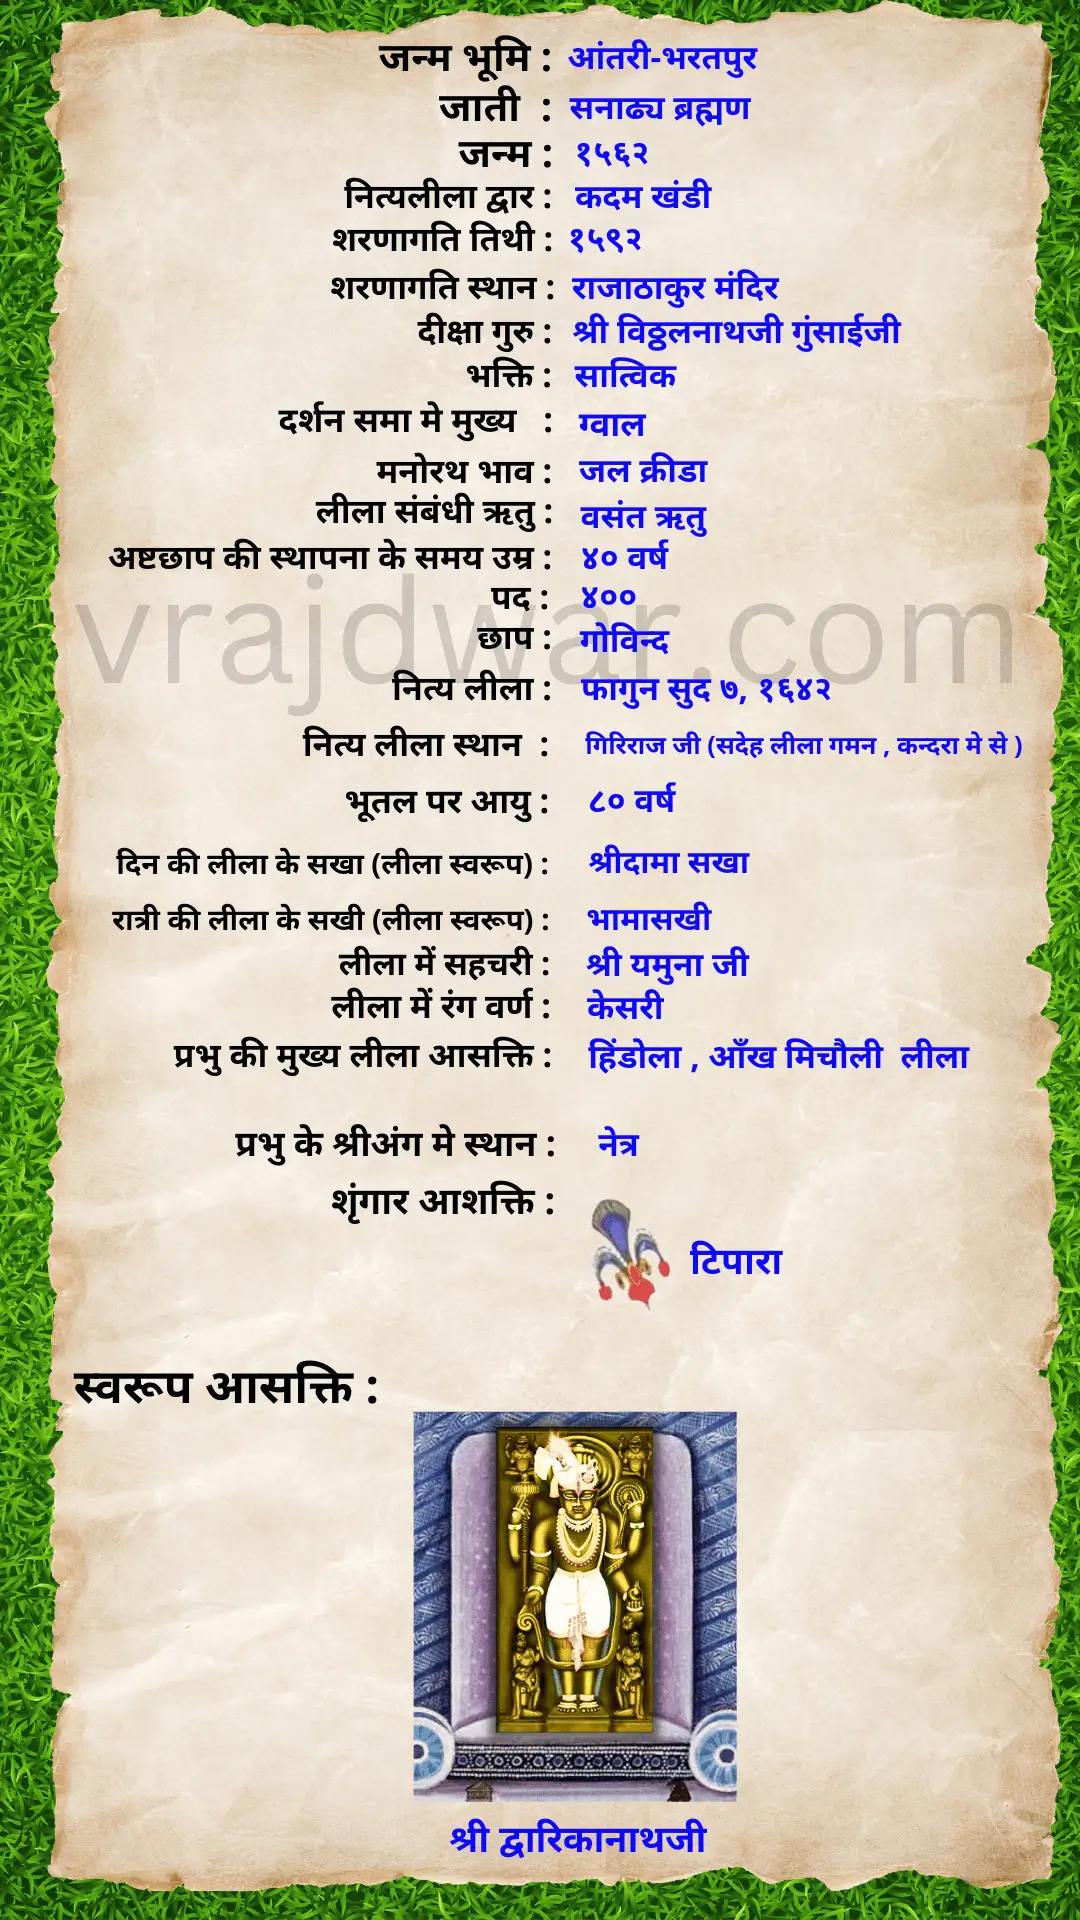 जन्म भूमि : आंतरी-भरतपुर
जाती : सनाढ्य ब्रह्मण
जन्म : १५६२
नित्यलीला द्वार : कदम खंडी
शरणागति तिथी : १५९२
शरणागति स्थान : राजाठाकुर मंदिर
दीक्षा गुरु : श्री विठ्ठलनाथजी गुंसाईजी
भक्ति : सात्विक
दर्शन समा मे मुख्य : ग्वाल
मनोरथ भाव : जल क्रीडा
लीला संबंधी ऋतु : वसंत ऋतु
अष्टछाप की स्थापना के समय उम्र : ४० वर्ष
पद : ४००
vrajdwar.com
छाप : गोविन्द
नित्य लीला : फागुन सुद ७, १६४२
नित्य लीला स्थान : गिरिराज जी (सदेह लीला गमन , कन्दरा मे से )
भूतल पर आयु : ८० वर्ष
दिन की लीला के सखा (लीला स्वरूप) : श्रीदामा सखा
रात्री की लीला के सखी (लीला स्वरूप) : भामासखी
लीला में सहचरी : श्री यमुना जी
लीला में रंग वर्ण : केसरी
प्रभु की मुख्य लीला आसक्ति : हिंडोला , आँख मिचौली लीला
प्रभु के श्रीअंग मे स्थान : नेत्र
शृंगार आशक्ति :
टिपारा
स्वरूप आसक्ति :
श्री द्वारिकानाथजी